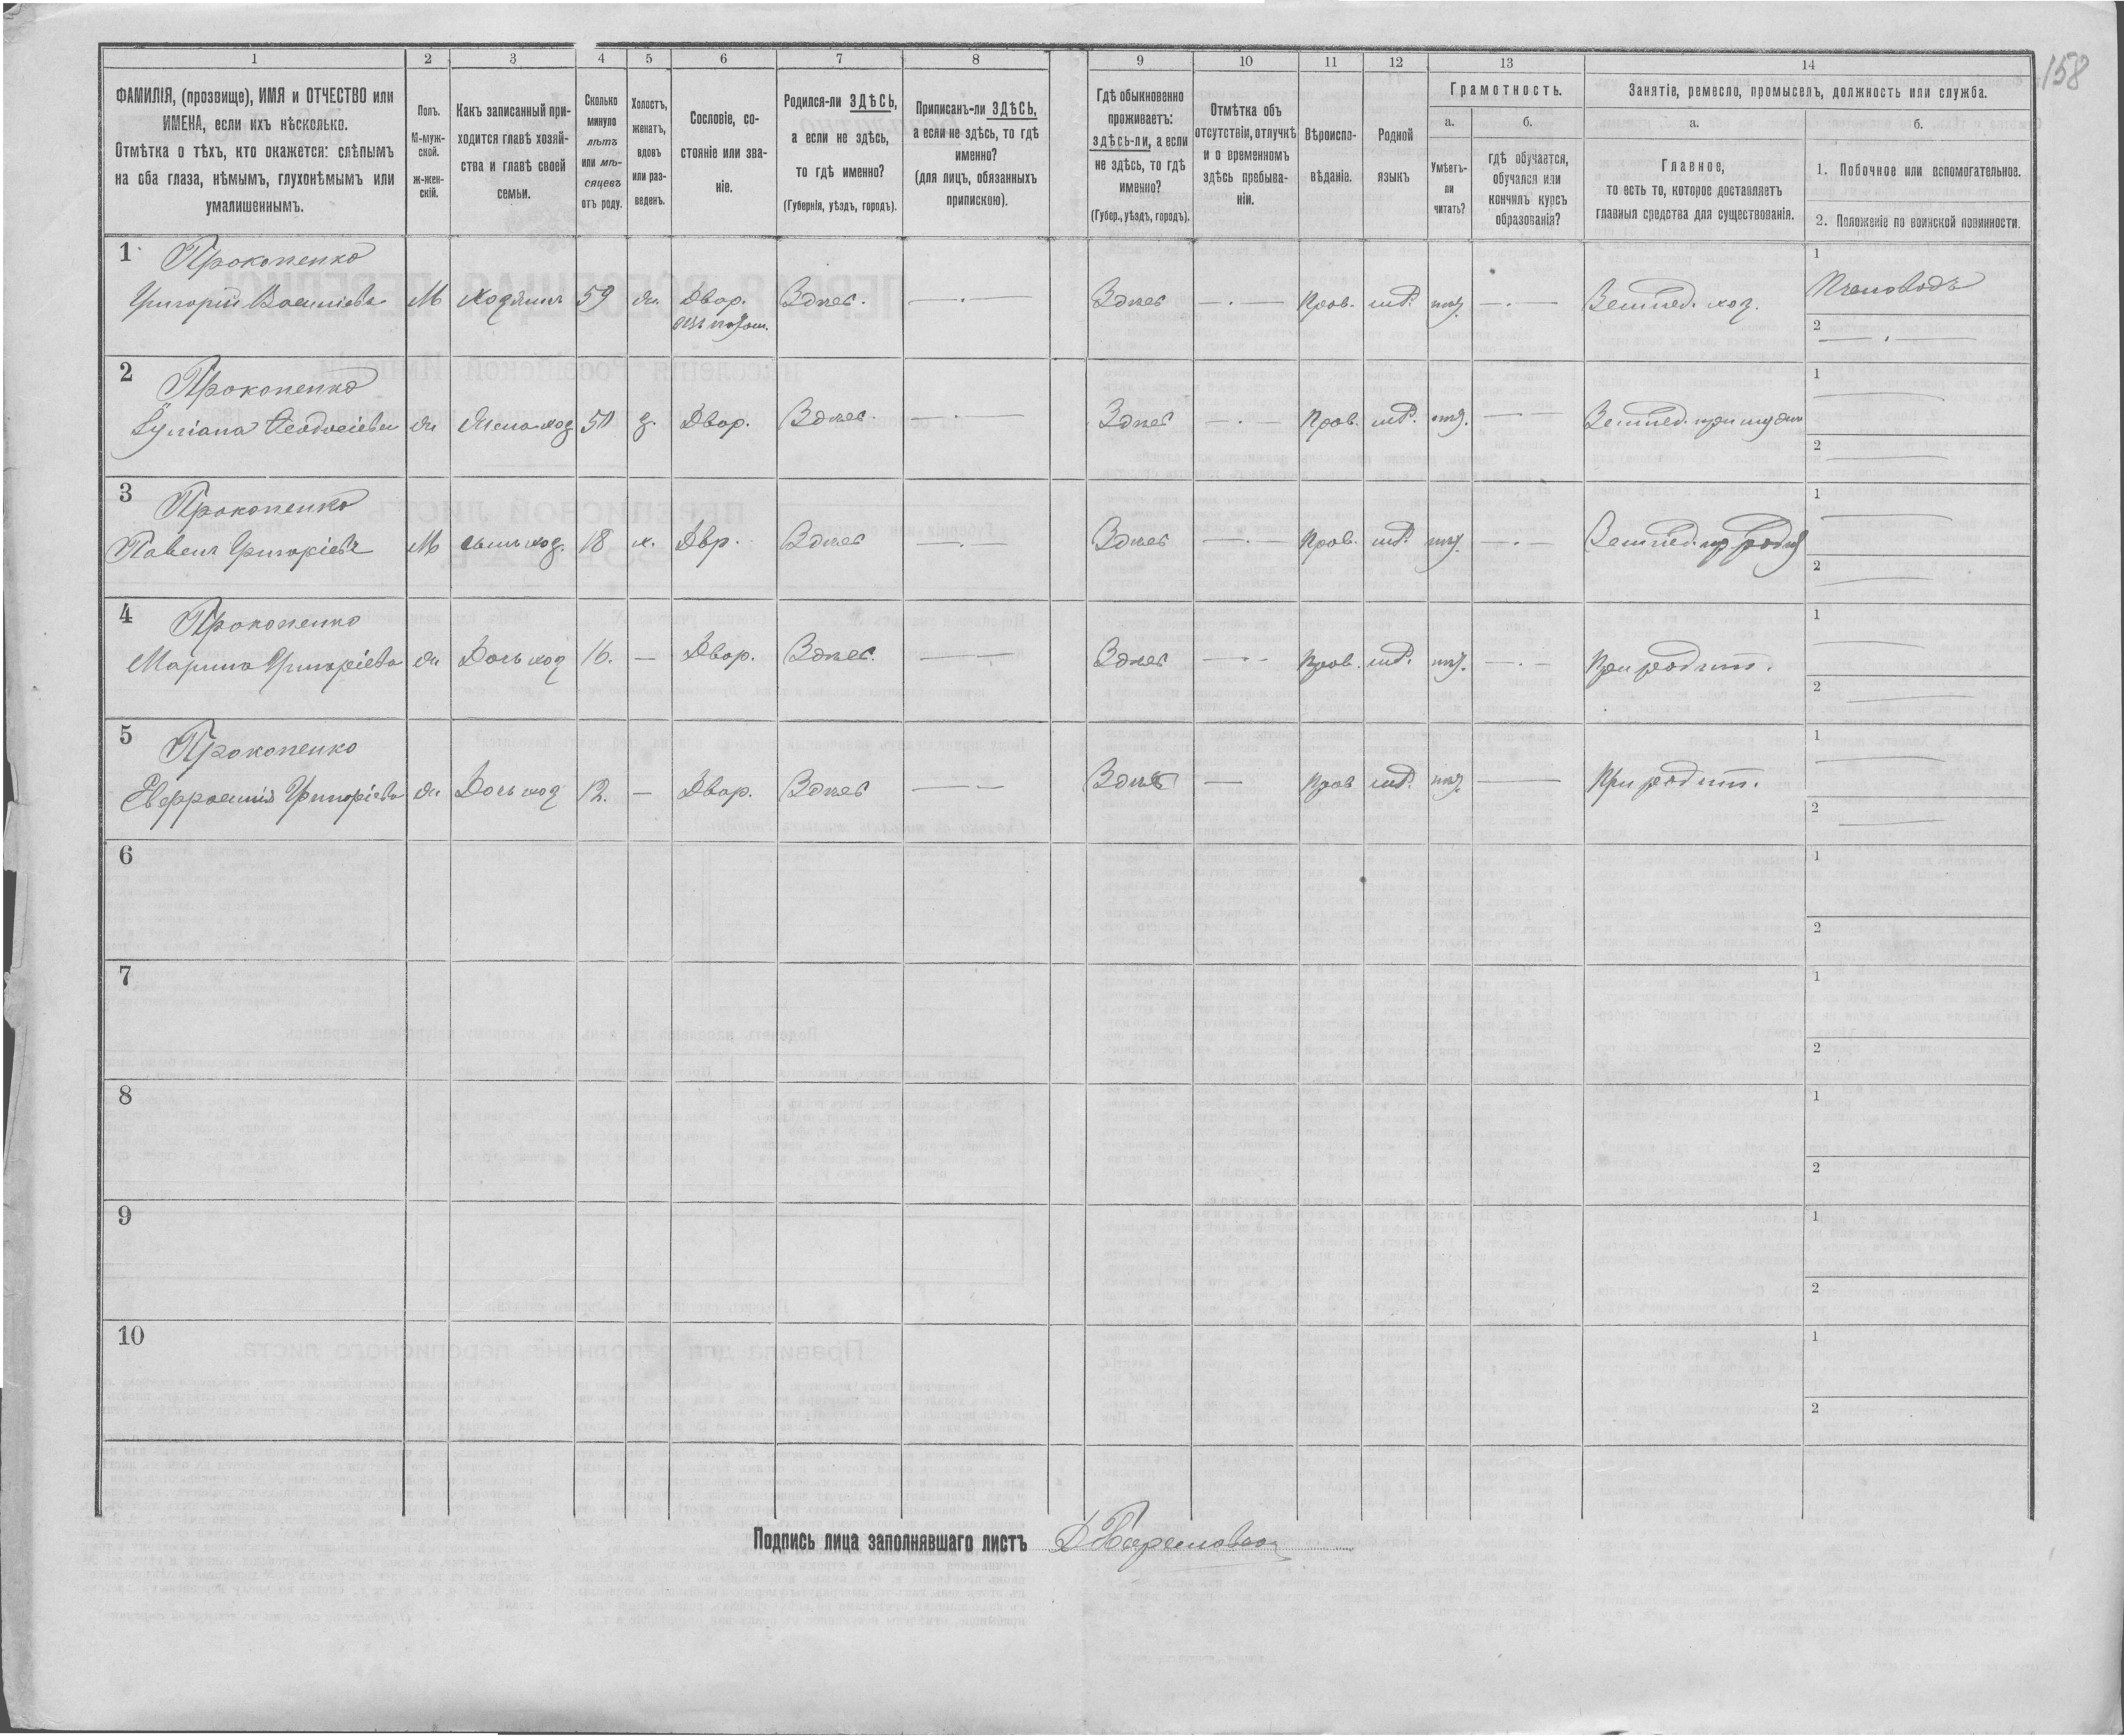 158
1 2 3 4 5 6 7 8 9 10 11 12 13 14
ФАМИЛІЯ, (прозвище), ИМЯ и ОТЧЕСТВО или
ИМЕНА, если ихъ нѣсколько.
Отмѣтка о тѣхъ, кто окажется: слѣпымъ
на оба глаза, нѣмымъ, глухонѣмымъ или
умалишеннымъ.
Полъ.
М-муж-
ской.
ж-жен-
скій.
Какъ записанный при-
ходится главѣ хозяй-
ства и главѣ своей
семьи.
Сколько
минуло
лѣтъ
или мѣ-
сяцевъ
отъ роду.
Холостъ,
женатъ,
вдовъ
или раз-
веденъ.
Сословіе, со-
стояніе или зва-
ніе.
Родился-ли ЗДѢСЬ,
а если не здѣсь,
то гдѣ именно?
(Губернія, уѣздъ, городъ).
Приписанъ-ли ЗДѢСЬ,
а если не здѣсь, то гдѣ
именно?
(для лицъ, обязанныхъ
припискою).
Гдѣ обыкновенно
проживаетъ:
здѣсь-ли, а если
не здѣсь, то гдѣ
именно?
(Губер., уѣздъ, городъ).
Отмѣтка объ
отсутствіи, отлучкѣ
и о временномъ
здѣсь пребыва-
ніи.
Вѣроиспо-
вѣданіе.
Родной
языкъ
Грамотность.
а.
Умѣетъ-
ли
читать?
б.
гдѣ обучается,
обучался или
кончилъ курсъ
образованія?
Занятіе, ремесло, промыселъ, должность или служба.
а.
Главное,
то есть то, которое доставляетъ
главныя средства для существованія.
б.
1. Побочное или вспомогательное.
2. Положеніе по воинской повинности.
1 Прокопенко 1
Григорій Васильевъ М Хозяинъ 59 ж. Двор. Здѣсь. — Здѣсь — Прав. мд. нѣт. — Землед. хоз. Пчеловодъ
2 —
2 Прокопенко 1 —
Іуліана Ѳеодосіева ж Жена хоз 50 з. Двор. Здѣсь. — Здѣсь — Прав. мд. нѣт. — Землед. при муж 2 —
3 Прокопенко 1 —
Павелъ Григоріевъ М сынъ хоз. 18 х. Двр. Здѣсь — Здѣсь — Прав. мд. нѣт. — Землед. пр род 2 —
4 Прокопенко 1 —
Марина Григоріева ж Дочь хоз 16. — Двор. Здѣсь. — Здѣсь — Прав. мд. нѣт. — При родит. 2 —
5 Прокопенко 1 —
Евфросинія Григоріева ж Дочь хоз 12. — Двор. Здѣсь — Здѣсь — Прав мд. нѣт. — При родит. 2 —
6 1
2
7 1
2
8 1
2
9 1
2
10 1
2
Подпись лица заполнявшаго листъ